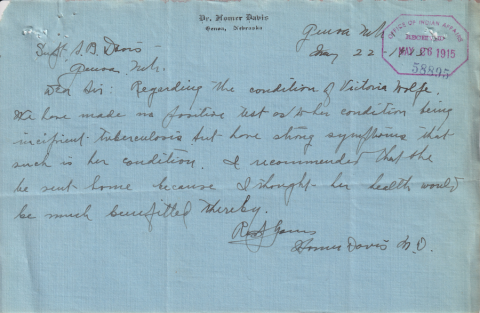 Dr. Homer Davis
Genoa, Nebraska
Genoa Neb.
May 22
OFFICE OF INDIAN AFFAIRS
RECEIVED
MAY 26 1915
58895
Supt. S. B. Davis
Genoa Neb.
Dear Sir: Regarding the condition of Victoria Wolfe.
We have made no positive test as to her condition being
incipient tuberculosis but have strong symptoms that
such is her condition. I recommended that she
be sent home because I thought her health would
be much benefitted thereby.
Homer Davis M.D.